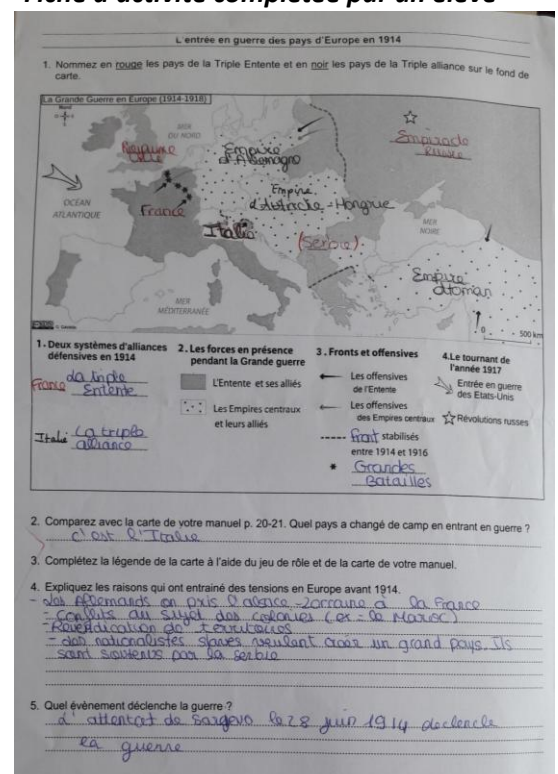 Fiche d'activité complétée par un élève
L'entrée en guerre des pays d'Europe en 1914
1. Nommez en rouge les pays de la Triple Entente et en noir les pays de la Triple alliance sur le fond de
carte.
La Grande Guerre en Europe (1914-1918)
Nord
MER
DU NORD
Royaume
Empire
d'Allemagne
Empire de
Russie
OCÉAN
ATLANTIQUE
France
Empire
d'Autriche-Hongrie
Italie
(Serbie)
MER
NOIRE
Empire
ottoman
MER
MÉDITERRANÉE
0 500 km
1. Deux systèmes d'alliances
défensives en 1914
France la triple
Entente
Italie La triple
alliance
2. Les forces en présence
pendant la Grande guerre
L'Entente et ses alliés
Les Empires centraux
et leurs alliés
3. Fronts et offensives
Les offensives
de l'Entente
Les offensives
des Empires centraux
front stabilisés
entre 1914 et 1916
Grandes
Batailles
4.Le tournant de
l'année 1917
Entrée en guerre
des Etats-Unis
Révolutions russes
2. Comparez avec la carte de votre manuel p. 20-21. Quel pays a changé de camp en entrant en guerre ?
c'est l'Italie
3. Complétez la légende de la carte à l'aide du jeu de rôle et de la carte de votre manuel.
4. Expliquez les raisons qui ont entrainé des tensions en Europe avant 1914.
- Les Allemands on pris l'alsace-Lorraine à la France
- Conflits au sujet des colonies (ex : le Maroc)
- Revendication de territoires
- des nationalistes slaves veulent créer un grand pays. Ils
sont soutenus par la serbie
5. Quel évènement déclenche la guerre ?
L'attentat de Sargevo le 28 juin 1914 declencle
la guerre